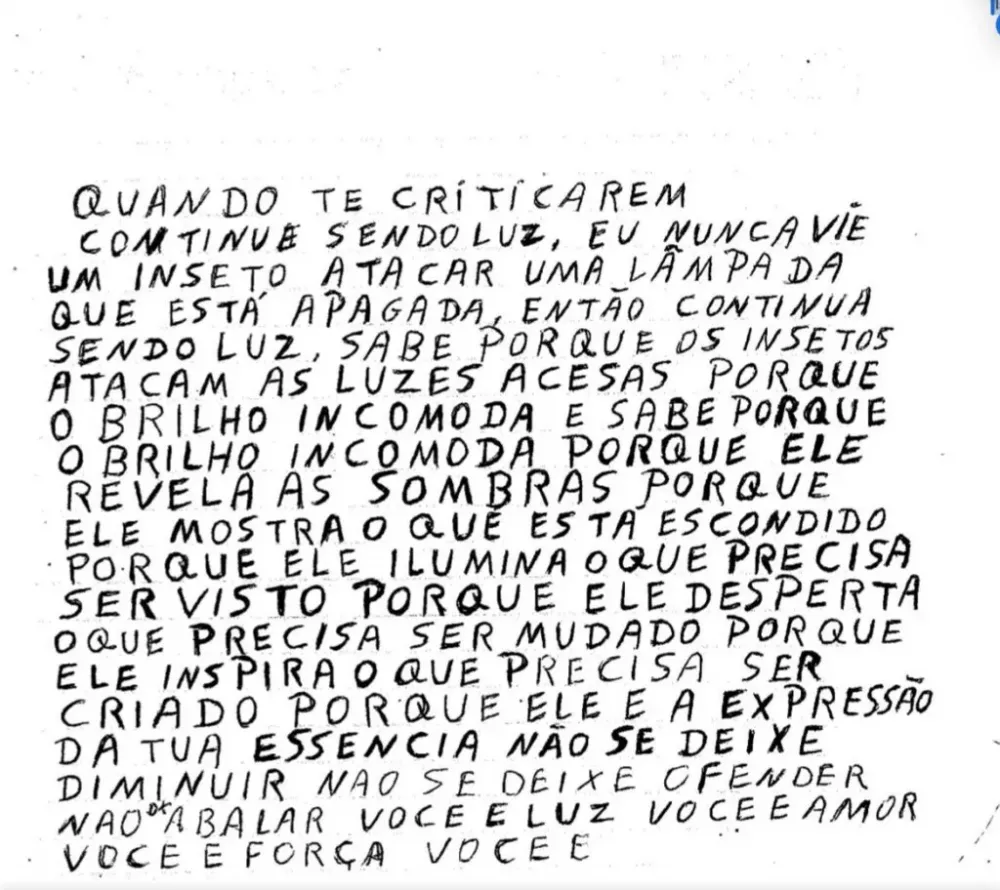 QUANDO TE CRÍTÍCAREM
CONTINUE SENDO LUZ, EU NUNCA VIE
UM INSETO ATACAR UMA LÂMPADA
QUE ESTÁ APAGADA, ENTÃO CONTINUA
SENDO LUZ, SABE PORQUE OS INSETOS
ATACAM AS LUZES ACESAS PORQUE
O BRILHO INCOMODA E SABE PORQUE
O BRILHO INCOMODA PORQUE ELE
REVELA AS SOMBRAS PORQUE
ELE MOSTRA O QUE ESTÁ ESCONDIDO
PORQUE ELE ILUMINA O QUE PRECISA
SER VISTO PORQUE ELE DESPERTA
O QUE PRECISA SER MUDADO PORQUE
ELE INSPIRA O QUE PRECISA SER
CRIADO PORQUE ELE E A EXPRESSÃO
DA TUA ESSENCIA NÃO SE DEIXE
DIMINUIR NAO SE DEIXE OFENDER
NAO ABALAR VOCE E LUZ VOCE E AMOR
VOCE E FORÇA VOCE E